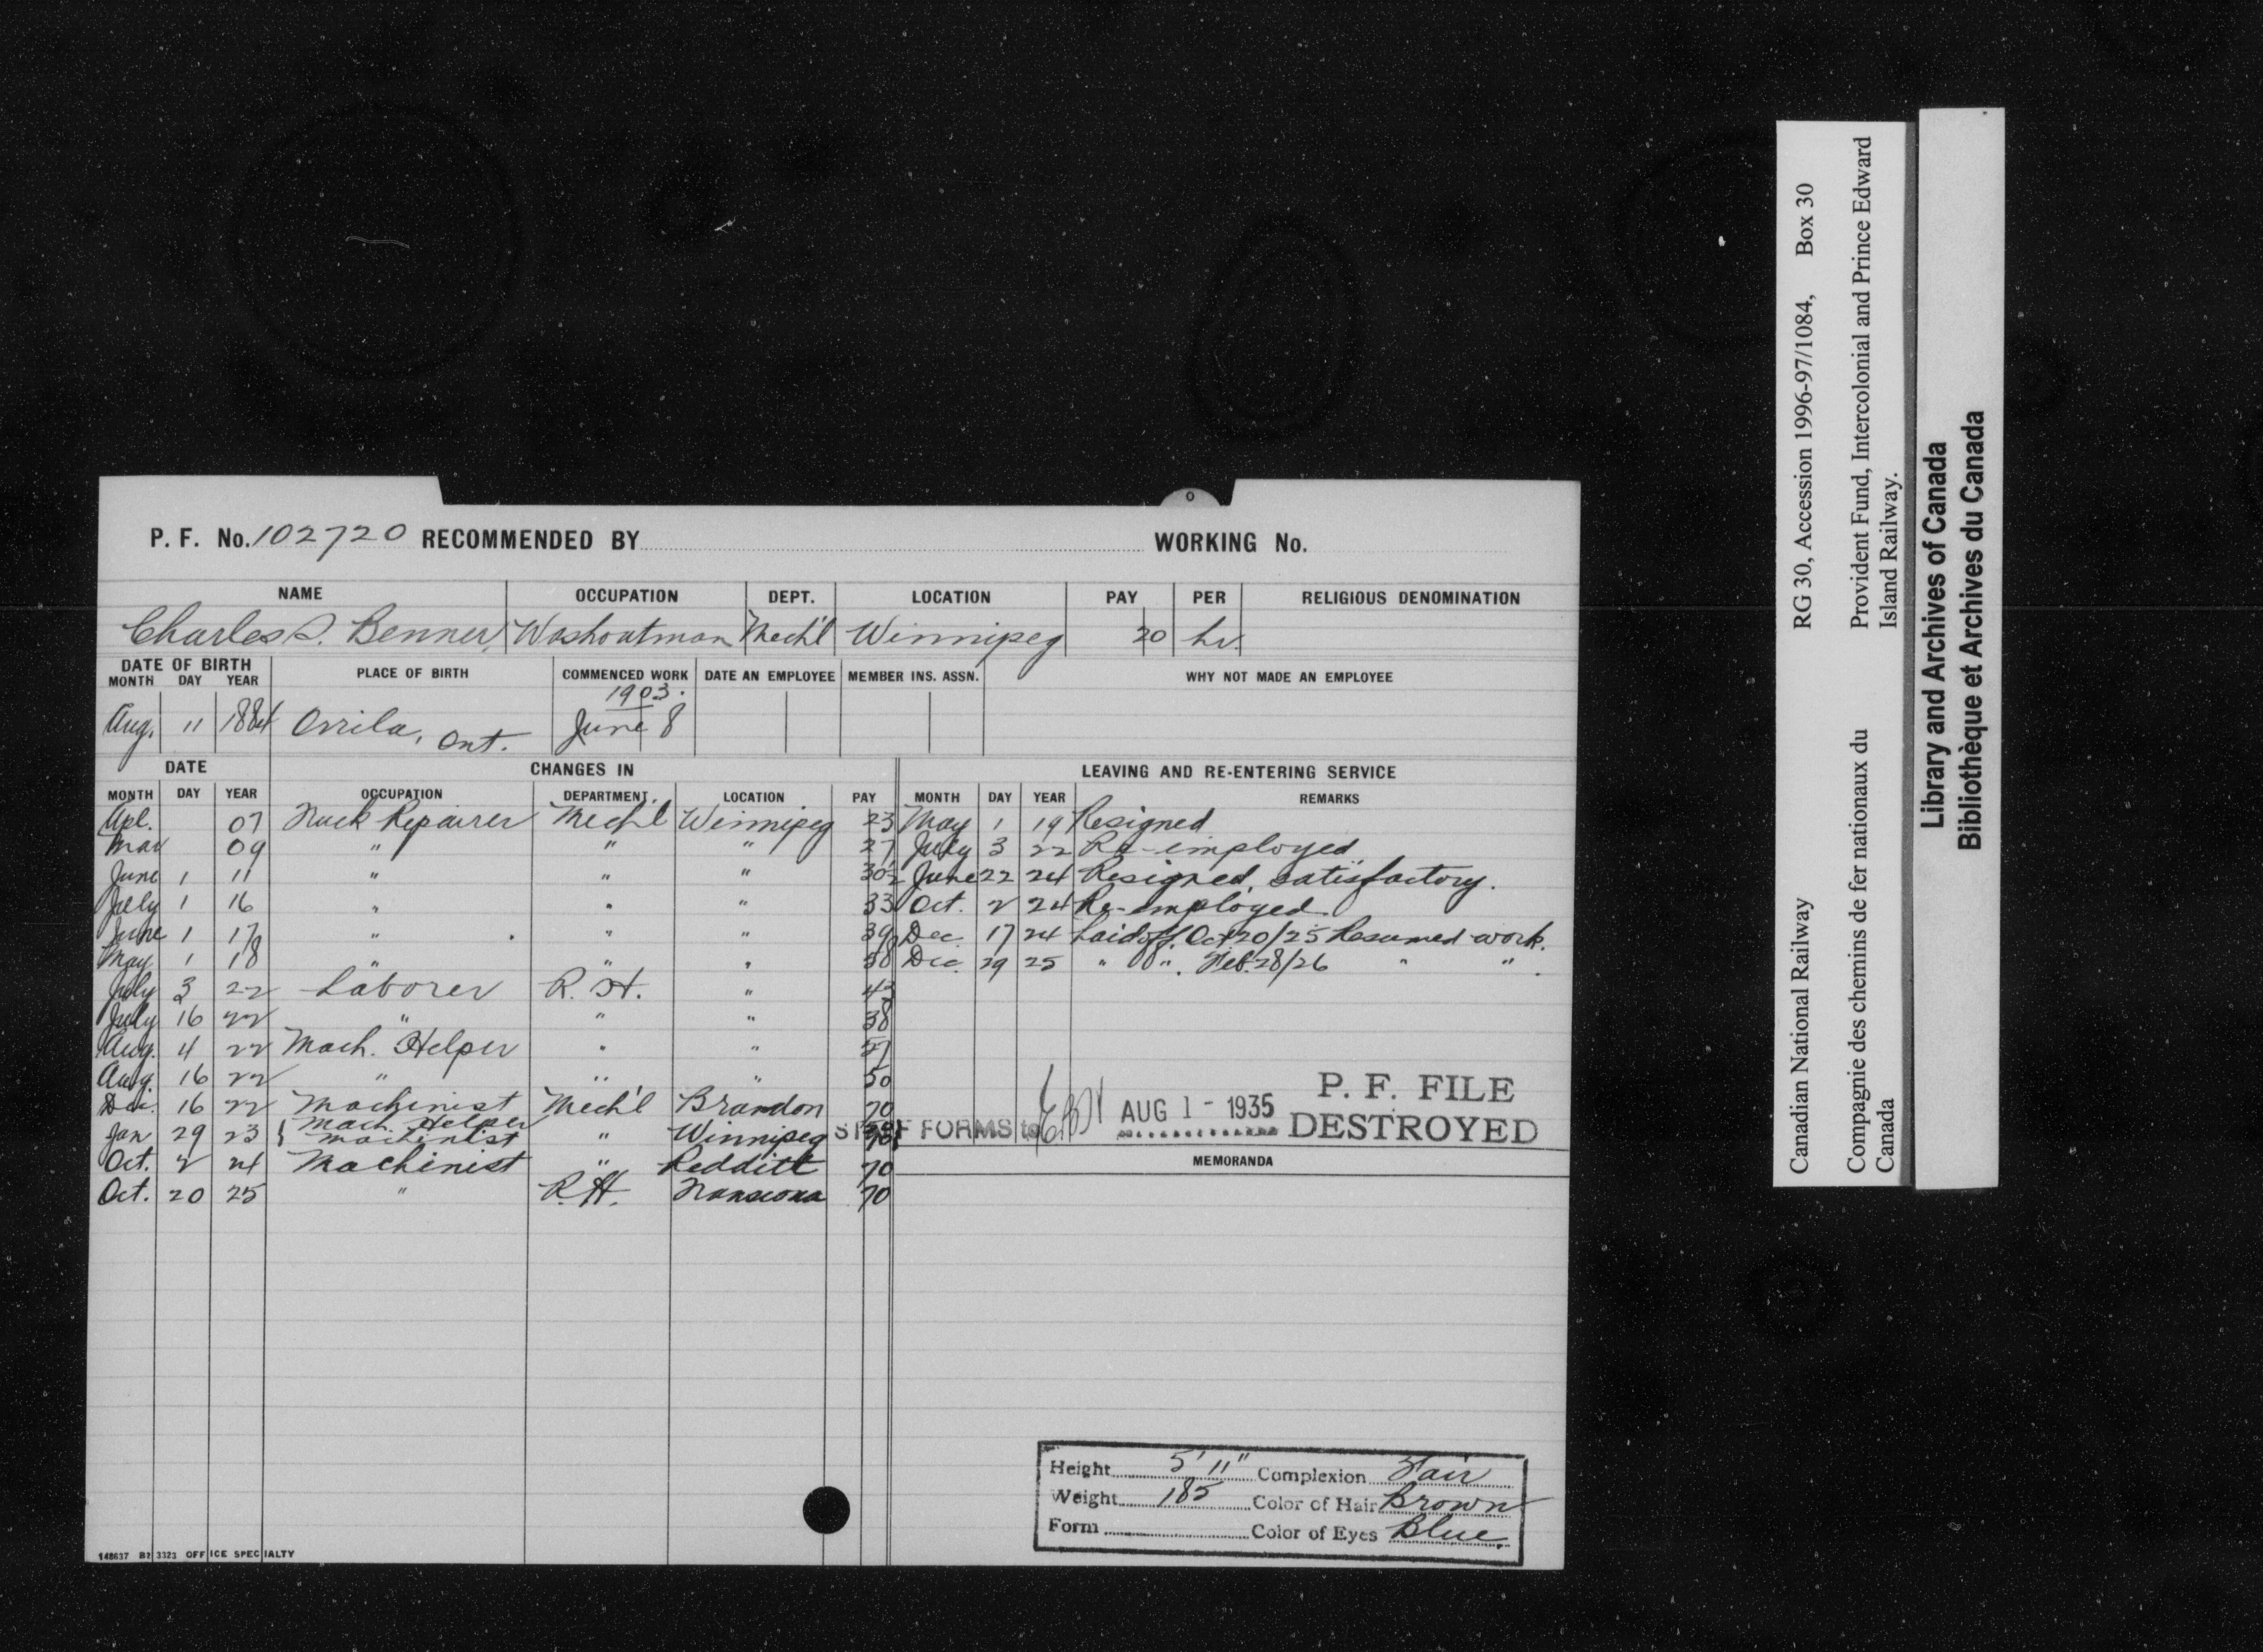 P. F. No. 102720 RECOMMENDED BY WORKING No.
NAME OCCUPATION DEPT. LOCATION PAY PER RELIGIOUS DENOMINATION
Charles S. Benner, Washoutman Mech'l Winnipeg 20 hr.
DATE OF BIRTH PLACE OF BIRTH COMMENCED WORK DATE AN EMPLOYEE MEMBER INS. ASSN. WHY NOT MADE AN EMPLOYEE
MONTH DAY YEAR
1903.
Aug. 11 1884 Orrila, Ont. June 8
DATE CHANGES IN LEAVING AND RE-ENTERING SERVICE
MONTH DAY YEAR OCCUPATION DEPARTMENT. LOCATION PAY MONTH DAY YEAR REMARKS
Apl. 07 Truck Repairer Mech'l Winnipeg 23 May 1 19 Resigned
Mar 09 " " " 27 July 3 22 Re-employed
June 1 11 " " " 30½ June 22 24 Resigned, satisfactory.
July 1 16 " " " 33 Oct. 2 24 Re-employed.
June 1 17 " " " 39 Dec. 17 24 Laid off, Oct 20/25 Resumed work.
May 1 18 " " " 58 Dec. 29 25 " " . Feb. 28/26 " " .
July 3 22 Laborer R. H. " 43
July 16 22 " " " 38
Aug. 4 22 Mach. Helper " " 51
Aug. 16 22 " " " 50
Dec. 16 22 Machinist Mech'l Brandon 70
Jan 29 23 { Mach. Helper
Machinist " Winnipeg 70
Oct. 2 24 Machinist " Redditt 70
Oct. 20 25 " R.H. Transcona 70
STAFF FORMS to AUG 1 - 1935 P. F. FILE
DESTROYED
MEMORANDA
Height 5' 11" Complexion Fair
Weight 185 Color of Hair Brown
Form Color of Eyes Blue.
148637 B2 3323 OFFICE SPECIALTY
Canadian National Railway RG 30, Accession 1996-97/1084, Box 30
Compagnie des chemins de fer nationaux du Canada
Provident Fund, Intercolonial and Prince Edward Island Railway.
Library and Archives of Canada
Bibliothèque et Archives du Canada